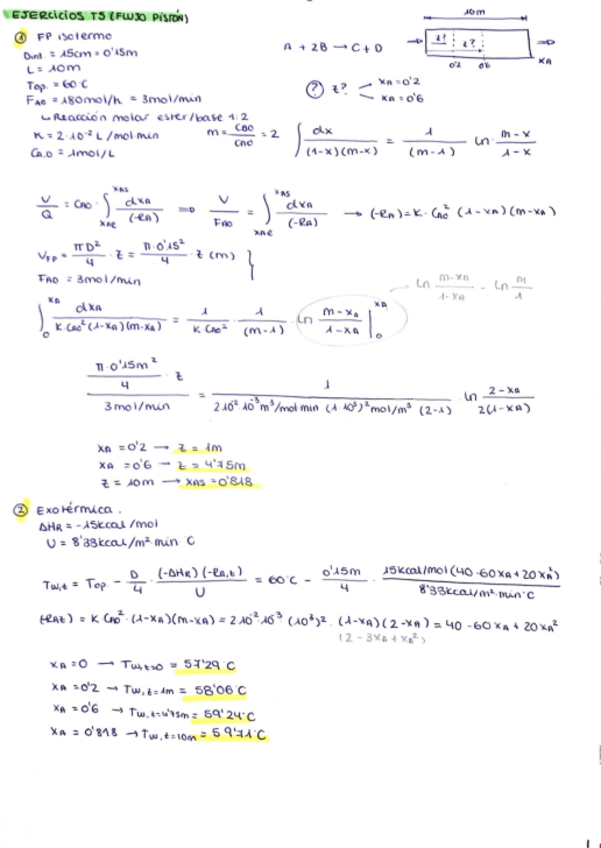 EJERCICIOS T5 (FLUJO PISTÓN)
① FP isotermo
Dint = 15cm = 0'15m
L = 10m
Top = 60°C
FA0 = 180mol/h = 3mol/min
↳ Reacción molar ester/base 1:2
K = 2·10⁻² L/mol min
m = CB0/CA0 = 2
CA,0 = 1mol/L
A + 2B → C + D
10m
z? z?
0'2 0'6 XA
? z? XA = 0'2
XA = 0'6
∫ dx/((1-x)(m-x)) = 1/(m-1) ln · (m-x)/(1-x)
V/Q = CA0 · ∫XAE^XAS dXA/(-RA) ⇒ V/FA0 = ∫XAE^XAS dXA/(-RA) → (-RA) = K·CA0² (1-XA)(m-XA)
VFP = πD²/4 · z = π·0'15²/4 · z (m)
FA0 = 3mol/min
∫0^XA dXA/(K CA0² (1-XA)(m-XA)) = 1/(K CA0²) · 1/(m-1) · ln (m-XA)/(1-XA) |0^XA
ln (m-XA)/(1-XA) - ln m/1
(π·0'15m²/4 · z)/(3mol/min) = 1/(2·10⁻²·10⁻³m³/mol min (1·10³)² mol/m³ (2-1)) ln (2-XA)/(2(1-XA))
XA = 0'2 → z = 1m
XA = 0'6 → z = 4'75m
z = 10m → XAS = 0'818
② Exotérmica.
ΔHR = -15kcal/mol
U = 8'33kcal/m² min °C
Tw,z = Top - D/4 · (-ΔHR)(-RA,z)/U = 60°C - 0'15m/4 · 15kcal/mol(40-60XA+20XA²)/(8'33kcal/m² min °C)
(-RAz) = K CA0² · (1-XA)(m-XA) = 2·10⁻²·10⁻³ (10³)² · (1-XA)(2-XA) = 40-60XA+20XA²
(2-3XA+XA²)
XA = 0 → Tw,z=0 = 57'29°C
XA = 0'2 → Tw,z=1m = 58'06°C
XA = 0'6 → Tw,z=4'75m = 59'24°C
XA = 0'818 → Tw,z=10m = 59'71°C